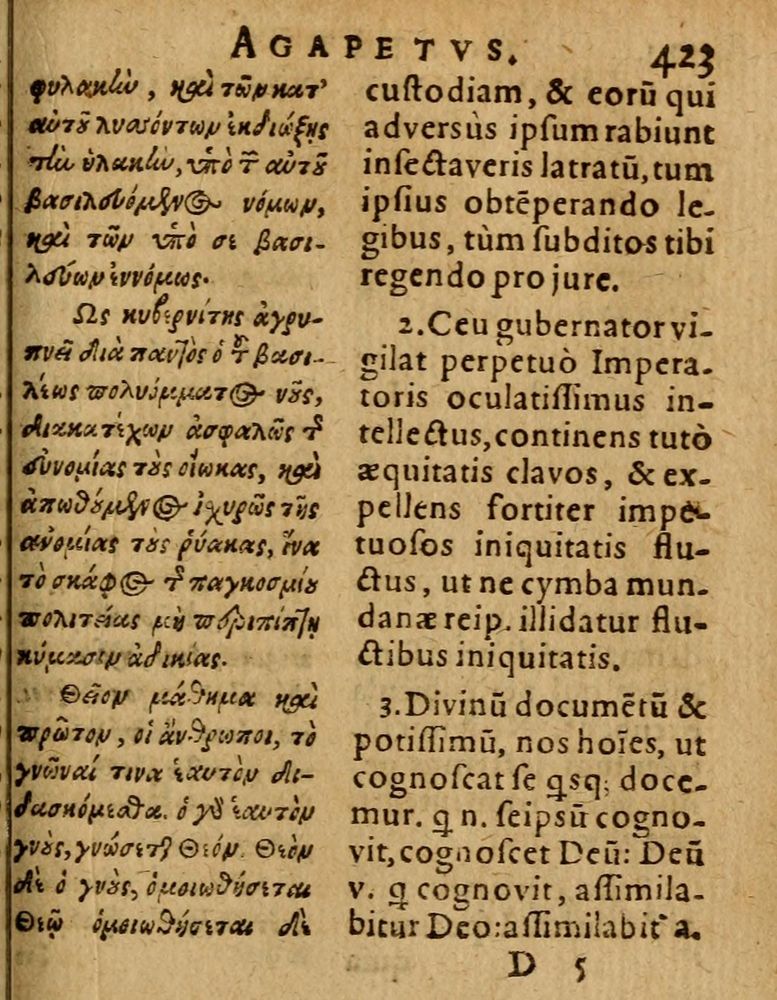 AGAPETVS. 423
φυλακὴν, καὶ τῶν κατ’
αὐτοῦ λυσσόντων ἐκδιώξης
τὴν ὑλακὴν, ὑπὸ τ̃ αὐτοῦ
βασιλευόμενος νόμων,
καὶ τῶν ὑπὸ σὲ βασι-
λεύων ἐννόμως.
Ὡς κυβερνήτης ἀγρυ-
πνεῖ διὰ παντὸς ὁ τ̃ βασι-
λέως πολυόμματος νοῦς,
διακατέχων ἀσφαλῶς τ̃
εὐνομίας τοὺς οἴωκας, καὶ
ἀπωθούμενος ἰχυρῶς τῆς
ἀνομίας τοὺς ῥύακας, ἵνα
τὸ σκάφος τ̃ παγκοσμίου
πολιτείας μὴ περιπίπτῃ
κύμασιν ἀδικίας.
Θεῖον μάθημα καὶ
πρῶτον, οἱ ἄνθρωποι, τὸ
γνῶναί τινα ἑαυτὸν δι-
δασκόμεθα. ὁ γὰρ ἑαυτὸν
γνοὺς, γνώσεται Θεόν. Θεὸν
δὲ ὁ γνοὺς, ὁμοιωθήσεται
Θεῷ ὁμοιωθήσεται δὲ
custodiam, & eorū qui
adversùs ipsum rabiunt
insectaveris latratū, tum
ipsius obtēperando le-
gibus, tùm subditos tibi
regendo pro jure.
2. Ceu gubernator vi-
gilat perpetuò Impera-
toris oculatissimus in-
tellectus, continens tutò
æquitatis clavos, & ex-
pellens fortiter impe-
tuosos iniquitatis flu-
ctus, ut ne cymba mun-
danæ reip. illidatur flu-
ctibus iniquitatis.
3. Divinū documētū &
potissimū, nos hoīes, ut
cognoscat se qsq; doce-
mur. q n. seipsū cogno-
vit, cognoscet Deū: Deū
v. q cognovit, assimila-
bitur Deo: assimilabit᷑ a.
D 5